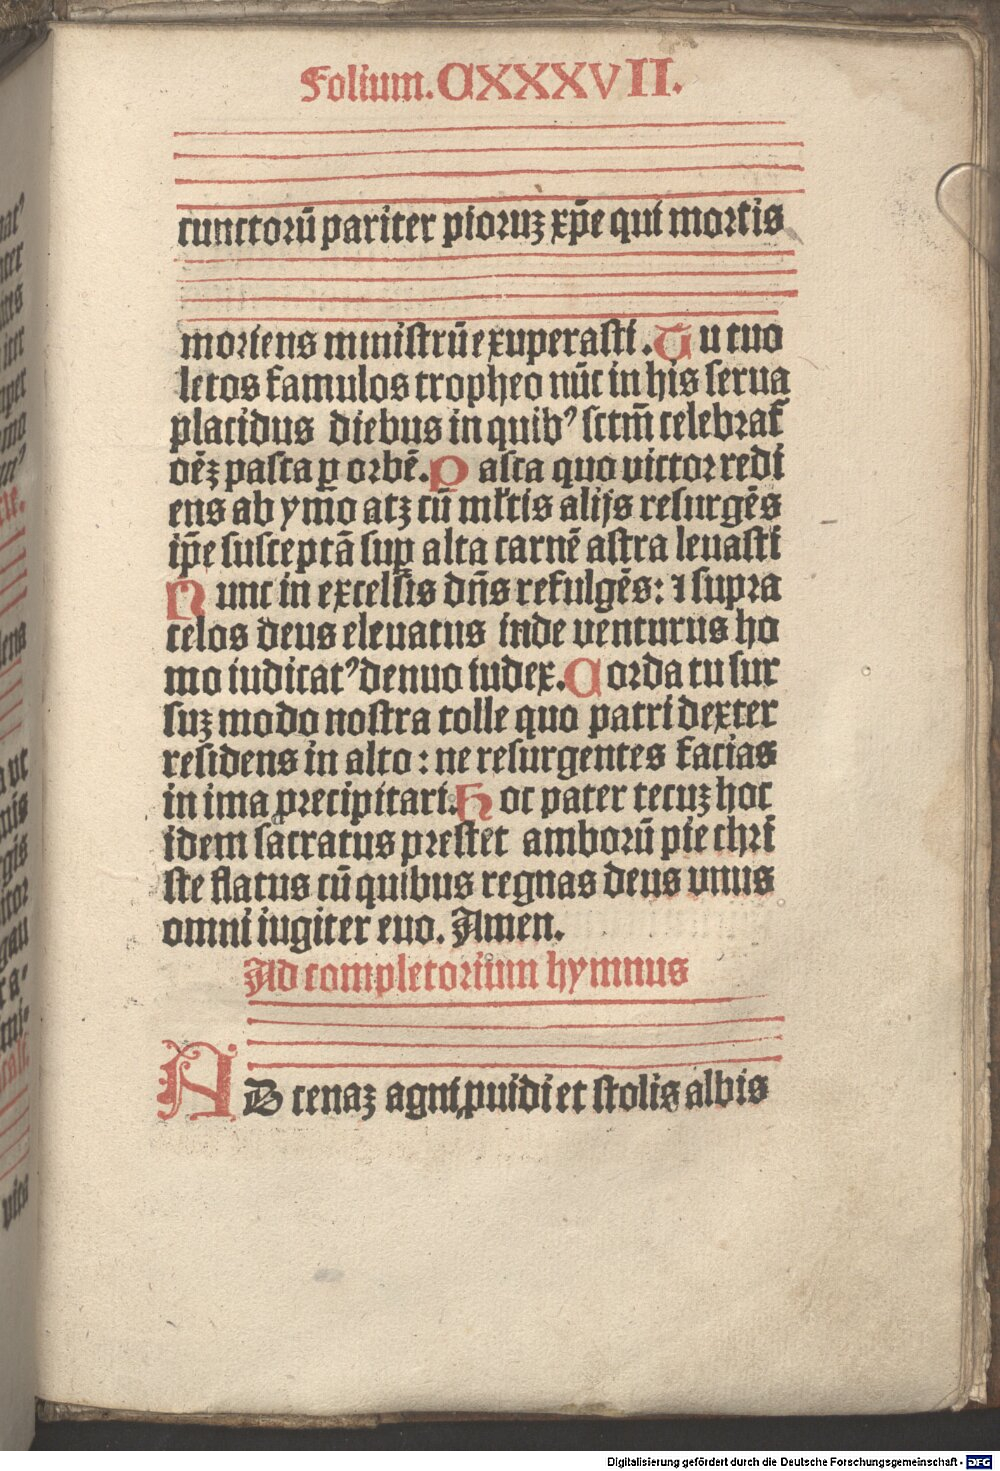 Folium. CXXXVII.
cunctorū pariter pioruꝫ xp̄e qui mortis
moriens ministrū exuperasti. Tu tuo
letos famulos tropheo nūc in his serua
placidus diebus in quibꝰ sctm̄ celebrat᷑
oēꝫ pasca ꝑ orbē. Pasca quo victor redi
ens ab ymo atꝫ cū ml̄tis alijs resurgēs
ip̄e susceptā suꝑ alta carnē astra leuasti
Nunc in excelsis dn̄s refulgēs: ⁊ supra
celos deus eleuatus inde venturus ho
mo iudicatꝰ denuo iudex. Corda tu sur
suꝫ modo nostra tolle quo patri dexter
residens in alto: ne resurgentes facias
in ima precipitari. Hoc pater tecuꝫ hoc
idem sacratus prestet amborū pie chri
ste flatus cū quibus regnas deus vnus
omni iugiter euo. Amen.
Ad completorium hymnus
AD cenaꝫ agni ꝓuidi et stolis albis
Digitalisierung gefördert durch die Deutsche Forschungsgemeinschaft - DFG